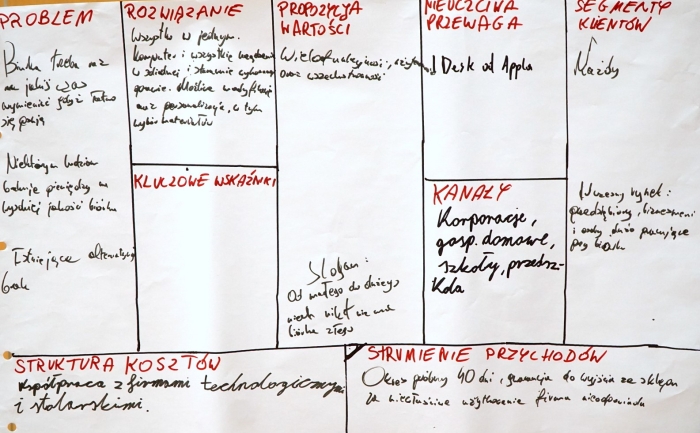 PROBLEM
Biurka trzeba raz
na jakiś czas
wymieniać gdyż łatwo
się psują
Niektórym ludziom
brakuje pieniędzy na
wysokiej jakości biurko
Istniejące alternatywy
brak
ROZWIĄZANIE
Wszystko w jednym.
Komputer i wszystkie
w
pracę. Możliwe modyfikacje
oraz personalizacja, w tym
wybór materiałów
KLUCZOWE WSKAŹNIKI
PROPOZYCJA
WARTOŚCI
Wielofunkcyjność,
oraz wszechstronność
Slogan:
Od małego do dużego
niech nikt się na
biurku
NIEUCZCIWA
PRZEWAGA
I Desk od Appla
KANAŁY
Korporacje,
gosp. domowe,
szkoły, przedsz-
kola
SEGMENTY
KLIENTÓW
Każdy
Wczesny rynek:
przedsiębiorcy, biznesmeni
i osoby dużo pracujące
przy biurku
STRUKTURA KOSZTÓW
współpraca z firmami technologicznymi
i stolarskimi.
STRUMIENIE PRZYCHODÓW
Okres próbny 40 dni, gwarancja do wyjścia ze sklepu
za niewłaściwe użytkowanie firma nieodpowiada